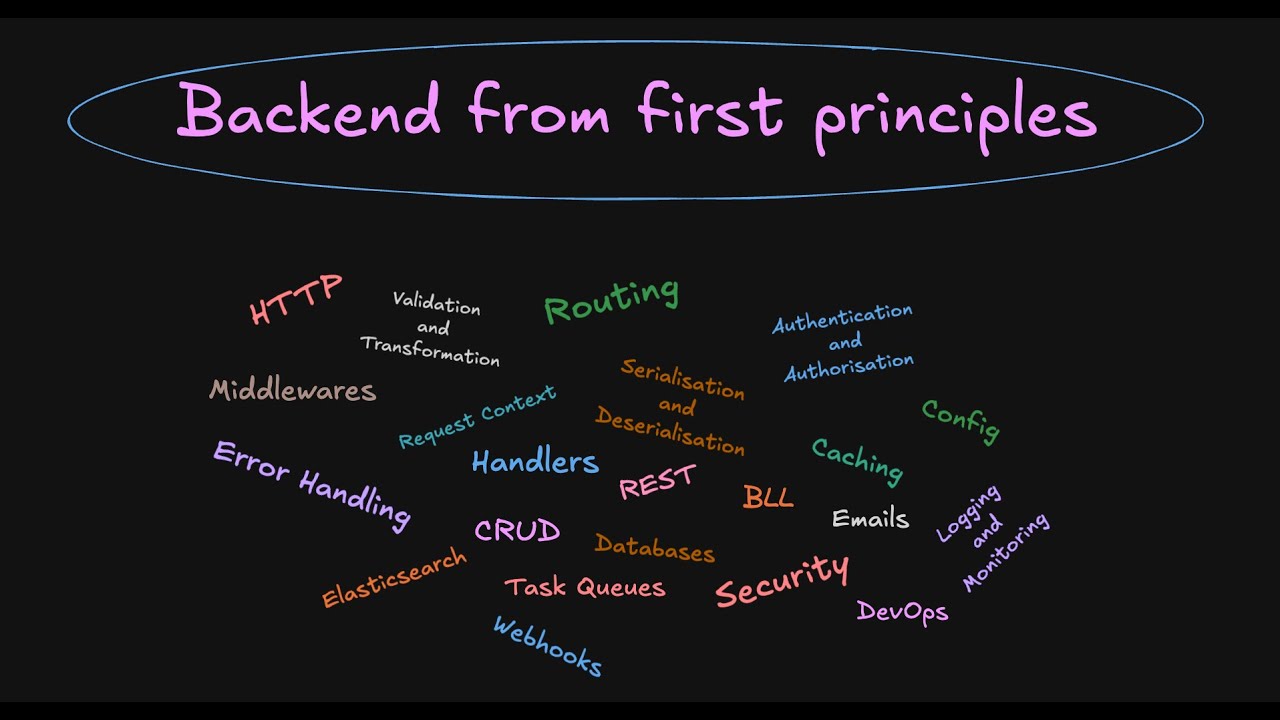 Backend from first principles
HTTP
Validation
and
Transformation
Routing
Authentication
and
Authorisation
Middlewares
Request Context
Serialisation
and
Deserialisation
Config
Error Handling
Handlers
REST
Caching
BLL
Emails
Logging
and
Monitoring
CRUD
Databases
Elasticsearch
Task Queues
Security
DevOps
Webhooks